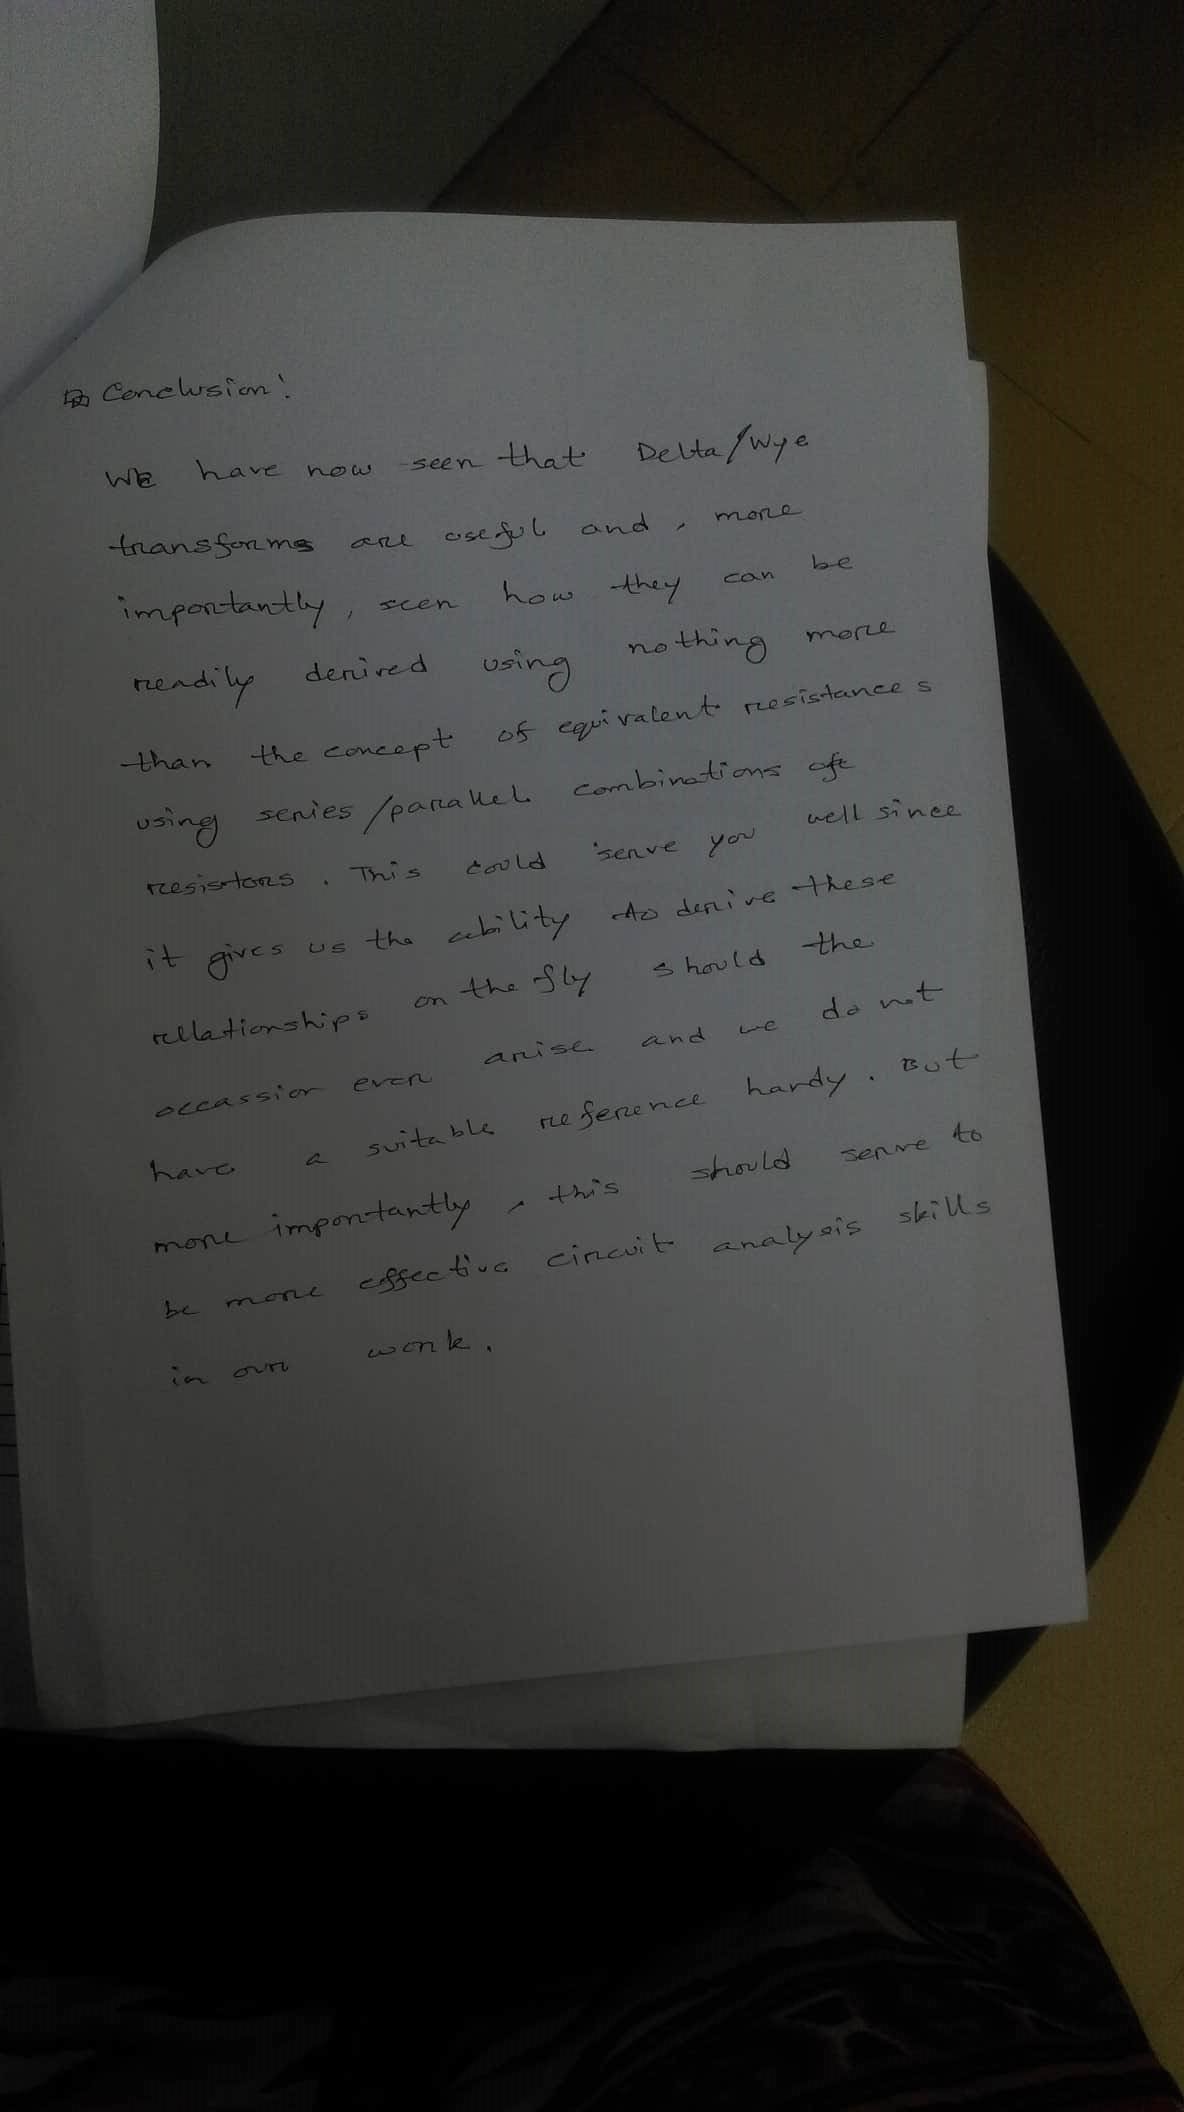 Conclusion:
We have now seen that Delta/Wye
transforms are useful and, more
importantly, seen how they can be
readily derived using nothing more
than the concept of equivalent resistances
using series/parallel combinations of
resistors. This could serve you well since
it gives us the ability to derive these
relationships on the fly should the
occassion ever arise and we do not
have a suitable reference handy. But
more importantly, this should serve to
be more effective circuit analysis skills
in our work.